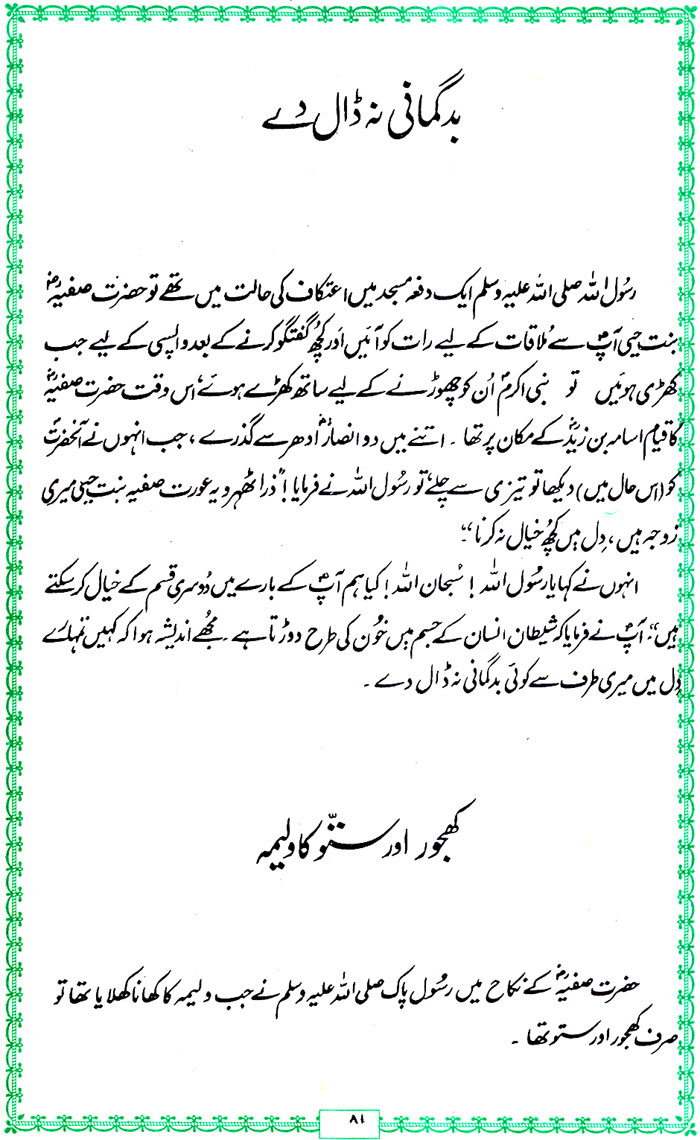 بدگمانی نہ ڈال دے
رسُول اللہ صلی اللہ علیہ وسلم ایک دفعہ مسجد میں اعتکاف کی حالت میں تھے تو حضرت صفیہؓ
بنت حیی آپؐ سے مُلاقات کے لیے رات کو آئیں اَور کچُھ گفتگو کرنے کے بعد واپسی کے لیے جب
کھڑی ہوئیں تو نبی اکرمؐ اُن کو چھوڑنے کے لیے ساتھ کھڑے ہوئے، اس وقت حضرت صفیہؓ
کا قیام اسامہ بن زیدؓ کے مکان پر تھا ۔ اتنے میں دو انصارؓ اُدھر سے گذرے ، جب انہوں نے آنحضرتؐ
کو (اس حال میں) دیکھا تو تیزی سے چلے، تو رسُول اللہ نے فرمایا! "ذرا ٹھہرو یہ عورت صفیہ بنت حیی میری
زوجہ ہیں ، دِل میں کچُھ خیال نہ کرنا"۔
انہوں نے کہا یا رسُول اللہ ! سُبحان اللہ ! کیا ہم آپؐ کے بارے میں دُوسری قسم کے خیال کر سکتے
ہیں"، آپؐ نے فرمایا کہ شیطان انسان کے جسم میں خوُن کی طرح دوڑتا ہے ۔ مجُھے اندیشہ ہوا کہ کہیں تمہارے
دِل میں میری طرف سے کوئی بدگمانی نہ ڈال دے ۔
کھجور اور ستّو کا ولیمہ
حضرت صفیہؓ کے نکاح میں رسُول پاک صلی اللہ علیہ وسلم نے جب ولیمہ کا کھانا کھلایا تھا تو
صرف کھجور اور ستو تھا ۔
۸۱